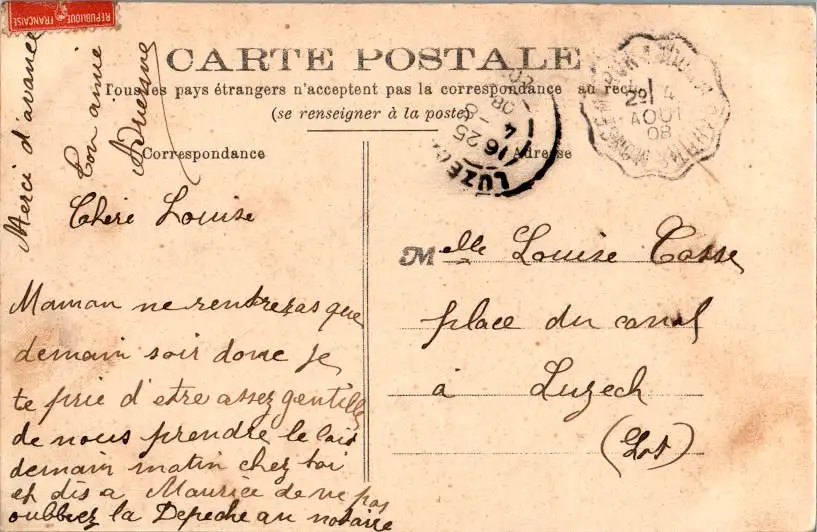 CARTE POSTALE
Tous les pays étrangers n'acceptent pas la correspondance au recto
(se renseigner à la poste)
Correspondance
Adresse
Cheri Louise
Maman ne rentrezas que
demain soir donc je
te prie d'etre assez gentille
de nous prendre le lait
demain matin chez toi
et dis a Maurice de ne pas
oubbiez la Depeche au notaire
Merci d'avance
Ton amie
Melle Louise Casse
place du canal
à Luzech
(Lot)
REPUBLIQUE FRANÇAISE
LUZEC
16 25
4
08
2º 4
AOUT
08